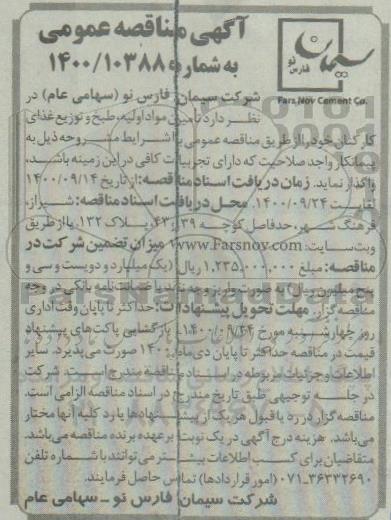 آگهی مناقصه عمومی
به شماره ۱۴۰۰/۱۰۳۸۸
سیمان
فارس نو
Fars Nov Cement Co.
شرکت سیمان فارس نو (سهامی عام) در
نظر دارد تأمین مواد اولیه، طبخ و توزیع غذای
کارکنان خود را از طریق مناقصه عمومی با شرایط مشروحه ذیل به
پیمانکار واجد صلاحیت که دارای تجربیات کافی در این زمینه باشد،
واگذار نماید. زمان دریافت اسناد مناقصه: از تاریخ ۱۴۰۰/۰۹/۱۴
لغایت ۱۴۰۰/۰۹/۲۴. محل دریافت اسناد مناقصه: شیراز،
فرهنگ شهر، حدفاصل کوچه ۳۹ و ۴۳، پلاک ۱۳۲. یا از طریق
وب‌سایت: www.Farsnov.com میزان تضمین شرکت در
مناقصه: مبلغ ۱,۲۳۵,۰۰۰,۰۰۰ ریال (یک میلیارد و دویست و سی و
پنج میلیون ریال) به صورت واریز وجه نقد یا ضمانت نامه بانکی در وجه
مناقصه گزار. مهلت تحویل پیشنهادات: حداکثر تا پایان وقت اداری
روز چهارشنبه مورخ ۱۴۰۰/۰۹/۲۴. بازگشایی پاکت‌های پیشنهاد
قیمت در مناقصه حداکثر تا پایان دی ماه ۱۴۰۰ صورت می‌پذیرد. سایر
اطلاعات و جزئیات مربوطه در اسناد مناقصه مندرج است. شرکت
در جلسه توجیهی طبق تاریخ مندرج در اسناد مناقصه الزامی است.
مناقصه گزار در رد یا قبول هر یک از پیشنهادها یا رد کلیه آنها مختار
می‌باشد. هزینه درج آگهی در یک نوبت برعهده برنده مناقصه می‌باشد.
متقاضیان برای کسب اطلاعات بیشتر می‌توانند با شماره تلفن
۰۷۱-۳۶۳۳۲۶۹۰ (امور قراردادها) تماس حاصل فرمایند.
شرکت سیمان فارس نو - سهامی عام